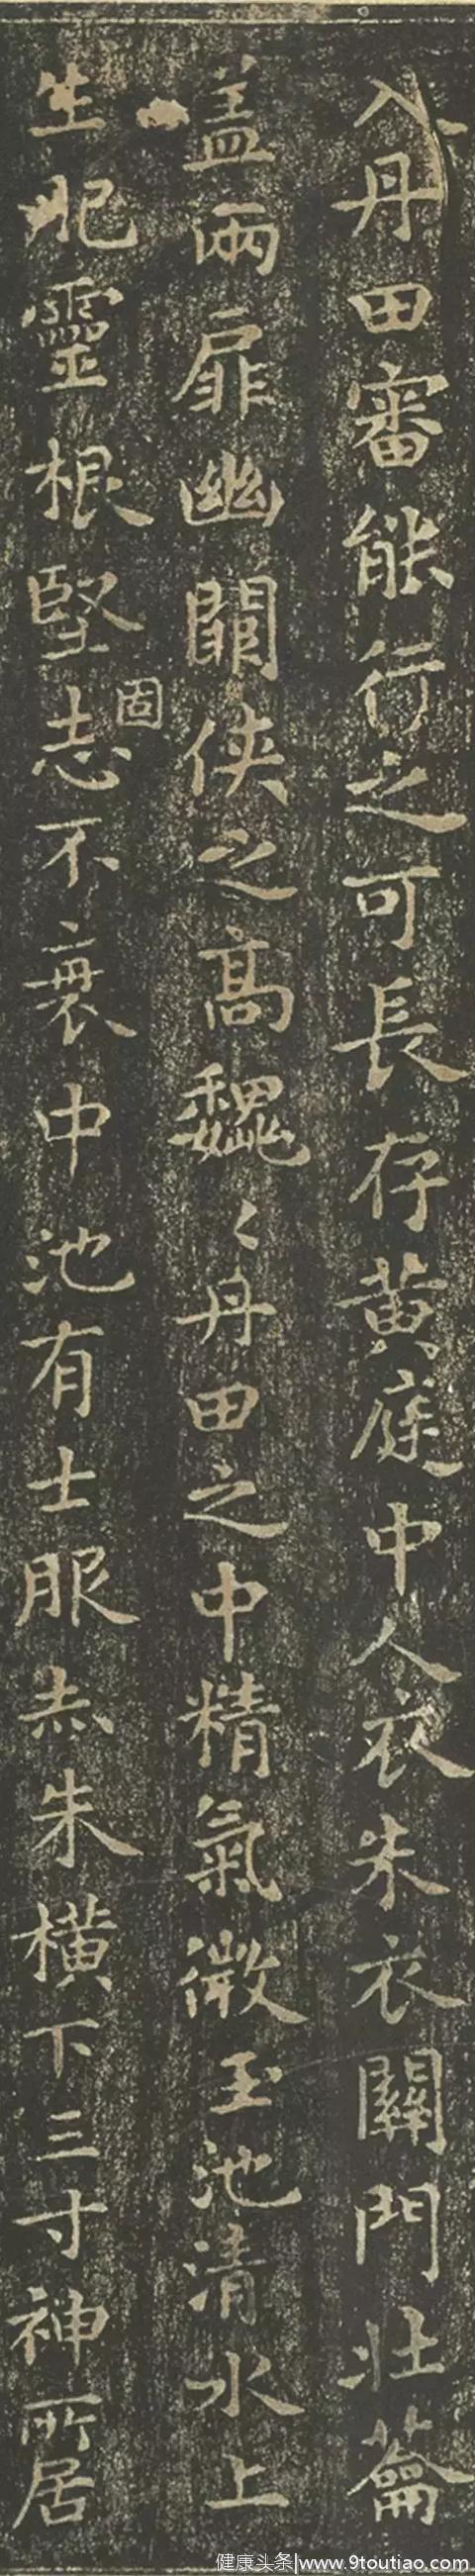 入丹田審能行之可長存黃庭中人衣朱衣關門壯蘥
盖兩扉幽闕俠之高巍〻丹田之中精氣微玉池清水上
生肥靈根堅固志不衰中池有士服赤朱橫下三寸神所居
健康头条|www.9toutiao.com